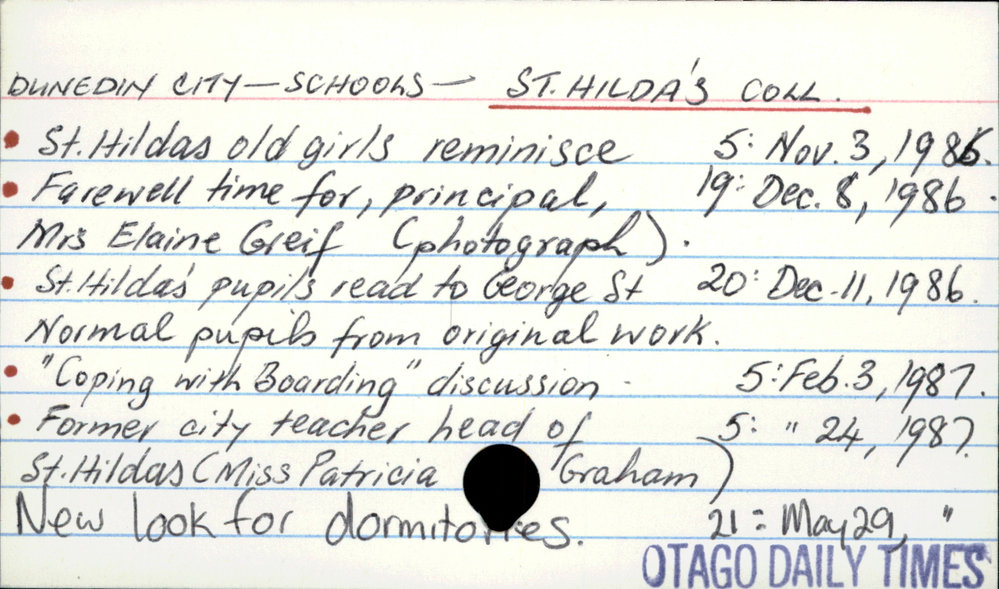 DUNEDIN CITY — SCHOOLS — ST. HILDA'S COLL.
• St. Hildas old girls reminisce 5: Nov. 3, 1986.
• Farewell time for, principal, 19: Dec. 8, 1986.
Mrs Elaine Greif (photograph).
• St. Hilda's pupils read to George St 20: Dec. 11, 1986.
Normal pupils from original work.
• "Coping with Boarding" discussion 5: Feb. 3, 1987.
• Former city teacher head of 5: " 24, 1987.
St. Hildas (Miss Patricia Graham)
New look for dormitories. 21: May 29, "
OTAGO DAILY TIMES